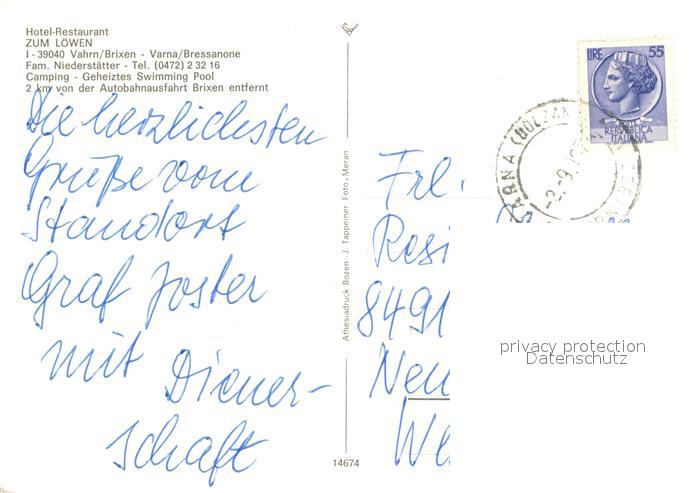 Hotel-Restaurant
ZUM LÖWEN
I - 39040 Vahrn/Brixen - Varna/Bressanone
Fam. Niederstätter - Tel. (0472) 2 32 16
Camping - Geheiztes Swimming Pool
2 km von der Autobahnausfahrt Brixen entfernt
Die herzlichsten
Grüße vom
Standort
Graf Joster
mit Diener-
schaft
Athesiadruck Bozen - J. Tappeiner Foto, Meran
14674
LIRE 55
REPVBBLICA
ITALIANA
VARNA (BOLZAN
-2.-9.
Frl.
Resi
8491
Neu
We
privacy protection
Datenschutz